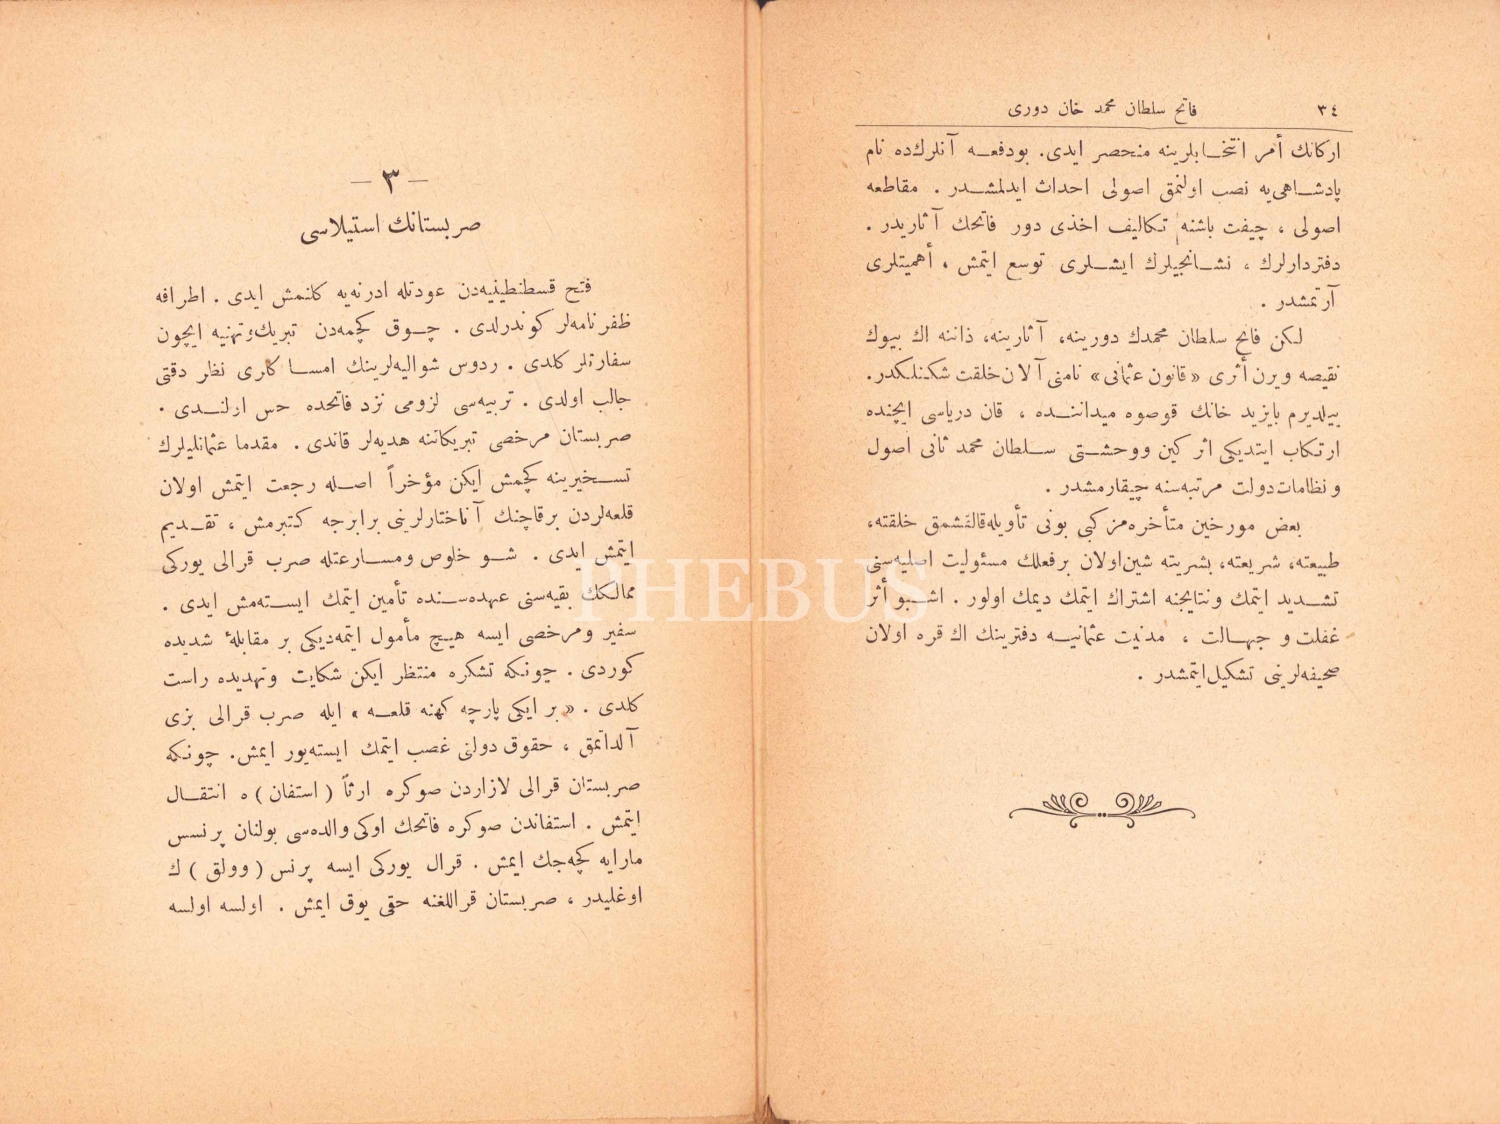 ٣٤
فاتح سلطان محمد خان دوری
اركانك أمر انتخابلرينه منحصر ايدی. بودفعه آنلرك‌ده نام
پادشاهی‌يه نصب اولنمق اصولی احداث ايدلمشدر . مقاطعه
اصولی ، چيفت باشنه تكاليف اخذی دور فاتحك آثاريدر .
دفتردارلرك ، نشانجيلرك ايشلری توسع ايتمش ، أهميتلری
آرتمشدر .
لكن فاتح سلطان محمدك دورينه، آثارينه، ذاتنه اك بيوك
نقيصه ويرن أثری «قانون عثمانی» نامنی آلان خلقت شكنلكدر.
ييلديرم بايزيد خانك قوصوه ميداننده ، قان درياسی ايچنده
ارتكاب ايتديكی اثر كين ووحشتی سلطان محمد ثانی اصول
و نظامات دولت مرتبه‌سنه چيقارمشدر .
بعض مورخين متأخره‌مز كبی بونی تأويله قالقشمق خلقته،
طبيعته، شريعته، بشريته شين اولان برفعلك مسئوليت اصليه‌سنی
تشديد ايتمك ونتايجنه اشتراك ايتمك ديمك اولور . اشبو أثر
غفلت و جهالت ، مدنيت عثمانيه دفترينك اك قره اولان
صحيفه‌لرينی تشكيل ايتمشدر .
— ٣ —
صربستانك استيلاسی
فتح قسطنطينيه‌دن عودتله ادرنه‌يه كلنمش ايدی . اطرافه
ظفرنامه‌لر كوندرلدی . چوق كچمه‌دن تبريك وتهنيه ايچون
سفارتلر كلدی . ردوس شواليه‌لرينك امساكاری نظر دقتی
جالب اولدی . تربيه‌سی لزومی نزد فاتحده حس اولندی .
صربستان مرخصی تبريكاتنه هديه‌لر قاتدی . مقدما عثمانليلرك
تسخيرينه كچمش ايكن مؤخراً اصله رجعت ايتمش اولان
قلعه‌لردن برقاچنك آناختارلرينی برابرجه كتيرمش ، تقديم
ايتمش ايدی . شو خلوص ومسارعتله صرب قرالی يوركی
ممالكك بقيه‌سنی عهده‌سنده تأمين ايتمك ايسته‌مش ايدی .
سفير ومرخصی ايسه هيچ مأمول ايتمه‌ديكی بر مقابلهٔ شديده
كوردی . چونكه تشكره منتظر ايكن شكايت وتهديده راست
كلدی . « بر ايكی پارچه كهنه قلعه » ايله صرب قرالی بزی
آلداتمق ، حقوق دولتی غصب ايتمك ايسته‌يور ايمش. چونكه
صربستان قرالی لازاردن صوكره ارثاً ( استفان ) ه انتقال
ايتمش . استفاندن صوكره فاتحك اوكی والده‌سی بولنان پرنسس
مارايه كچه‌جك ايمش . قرال يوركی ايسه پرنس ( وولق ) ك
اوغليدر ، صربستان قراللغنه حقی يوق ايمش . اولسه اولسه
PHEBUS